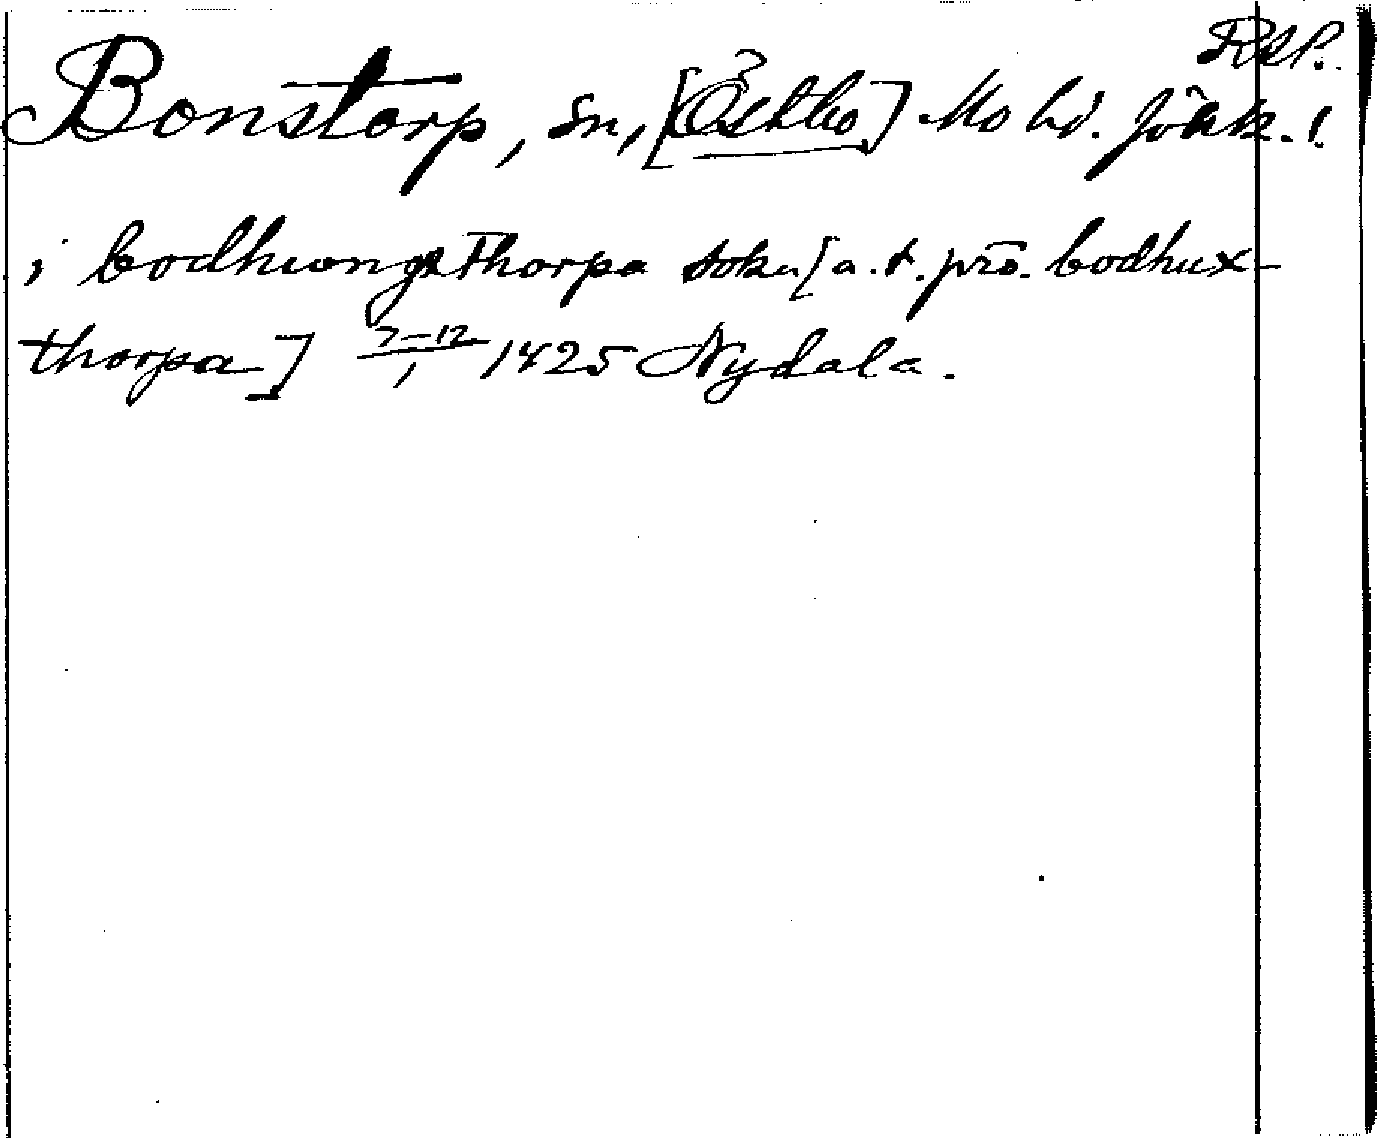 RAP.
Bonstorp, sn, [Östbo] Mo hd. Jönk. l.
i bodhiongxthorpa sokn [a.t. pro. bodhux-
thorpa] 7–12/1 1425 Nydala.